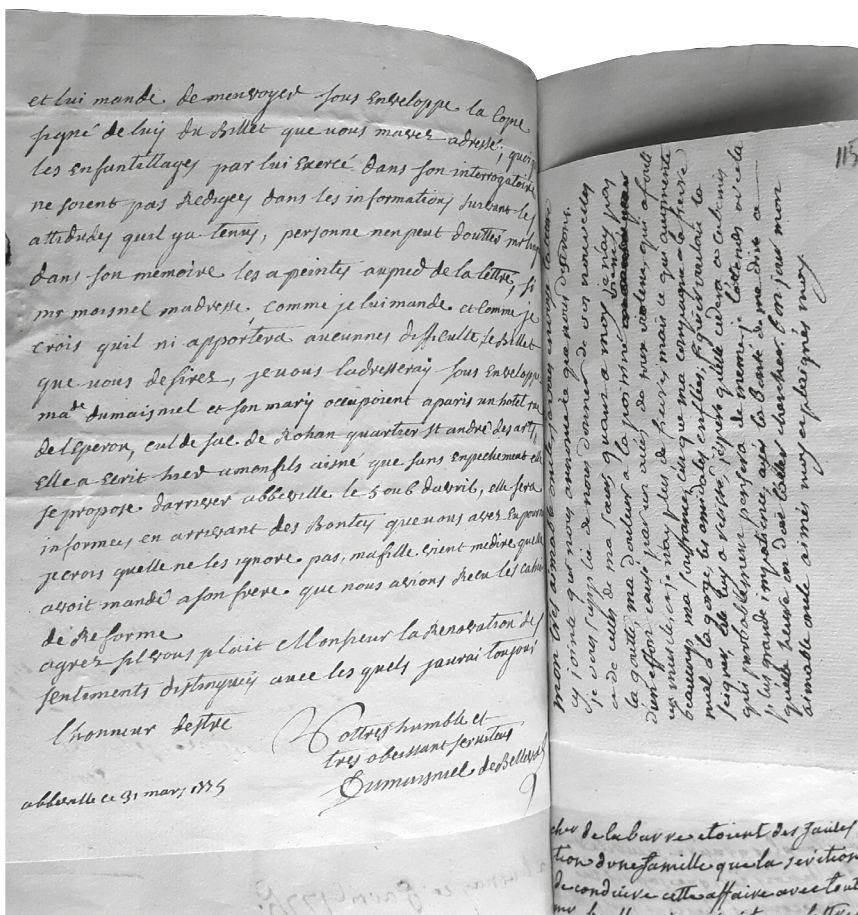 et lui mande de menvoyer sous Enveloppe la Copie
signé de luy du Billet que vous mavez adressé, quoique
les Enfantillages par lui Exercé dans son interrogatoire
ne soient pas Redigés dans les informations suivant les
attitudes quil y a tenus, personne nen peut doutter mr
dans son mémoire les a peintes aupied de la lettre, si
mr moisnel madresse comme je lui mande et comme je
crois quil ni apportera aucunnes difficulté, le Billet
que vous desirez, je vous ladresseray sous Enveloppe
made dumaisniel et son mary occupoient a paris un hotel rue
de lEperon, cul de sac de Rohan quartier st andré des arts,
Elle a Ecrit hier a mon fils aisné que sans enpechement elle
se propose darriver abbeville le 5 ou 6 davril, elle sera
informée en arrivant des Bontés que vous avez eu pour
je crois quelle ne les ignore pas, ma fille vient me dire quelle
avoit mandé a son frere que nous avions Recu les
de Reforme
agrez sil vous plait Monsieur la Renovation des
sentiments distingués avec les quels jaurai toujours
lhonneur destre
Vottre humble et
tres obeissant serviteur
Dumaisniel de Belleval
abbeville ce 31 mars 1775
115
mon tres aimable oncle
cy jointe qui nous annonce ce que nous desirons.
je vous supplie de nous donner de vos nouvelles
et de celles de ma soeur quant a moy je nay pas
la goutte, ma douleur a la poitrine
dun effort causé par un accés de toux violent, qui a
un muscle, je nay plus de fievre, mais ce qui augmente
beaucoup ma souffrance, cest que ma compagne a la fievre
mal a la gorge, les amidales enflées,
seigner, Elle luy a resisté, jespere quelle cedera
qui probablement pensera de meme, je lattends
plus grande impatience, ayés la Bonté de me dire a
quelle heure on doit laller chercher. Bon jour mon
aimable oncle aimés moy et plaignés moy
cher de la barre etoient des fautes
tion dune famille que la
de conduire cette affaire avec tout